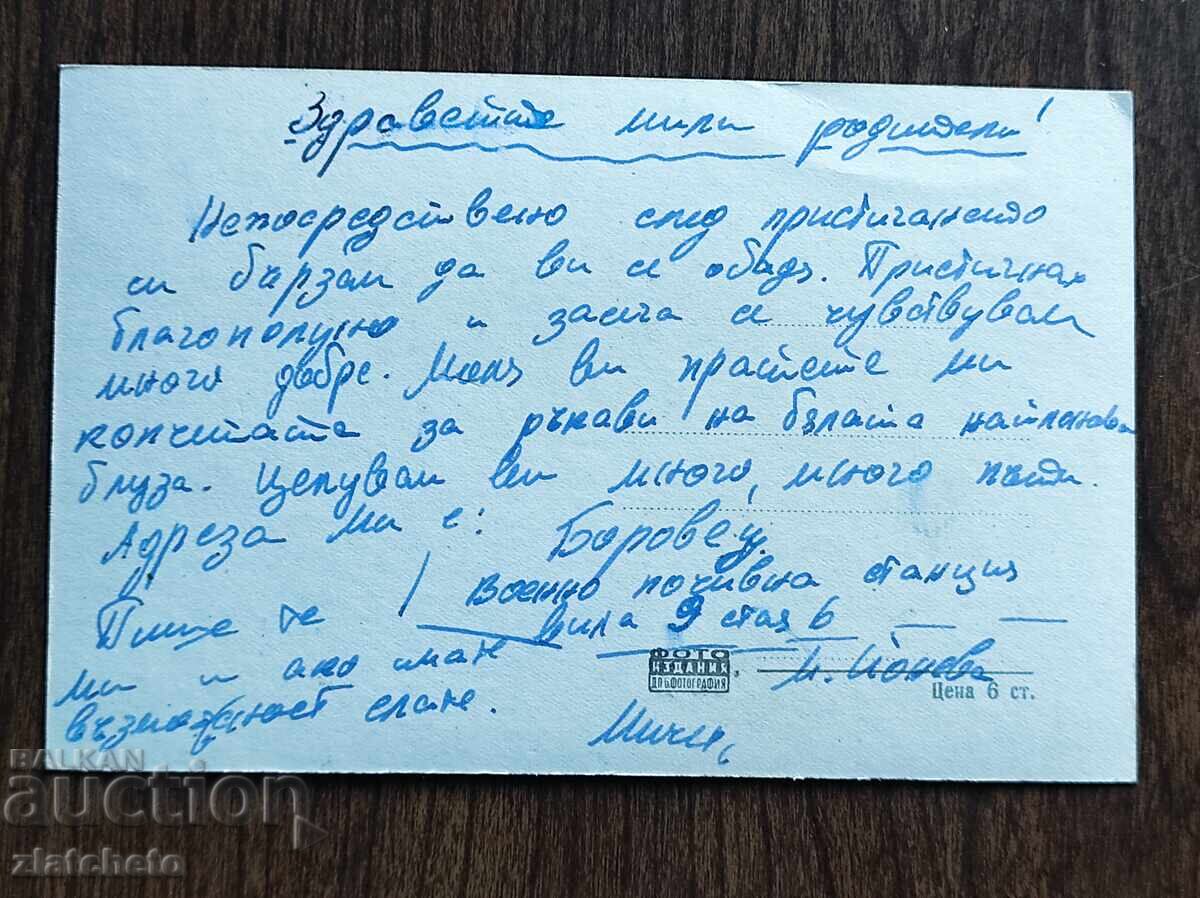 Здравейте мили родители!
Непосредствено след пристигането
си бързам да ви се обадя. Пристигнах
благополучно и засега се чувствувам
много добре. Моля ви пратете ми
копчетата за ръкави на бялата найлонова
блуза. Целувам ви много, много пъти.
Адреса ми е: Боровец
Военно почивна станция
вила 9 стая 6
Пише те
ми и ако имам
възможност
Цена 6 ст.
ФОТО
ИЗДАНИЯ
ДП БФОТОГРАФИЯ
BALKAN
auction
zlatcheto